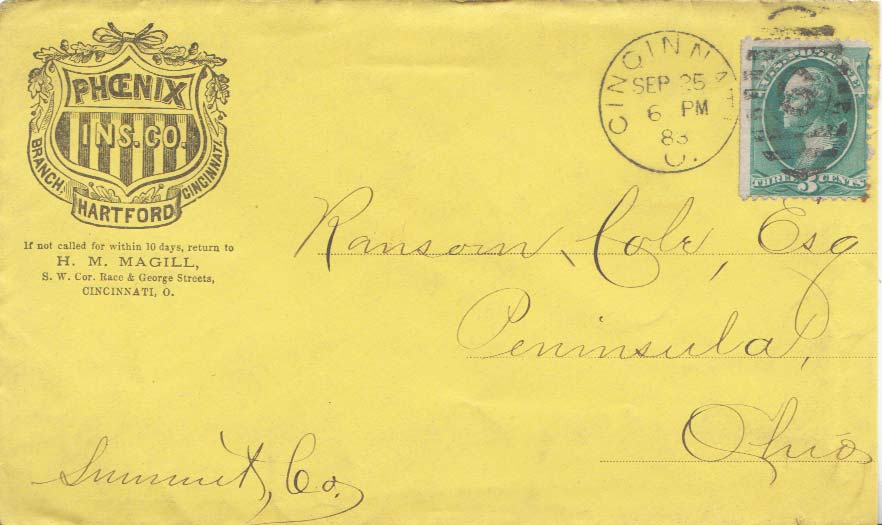 PHŒNIX
INS. CO.
BRANCH,
CINCINNATI.
HARTFORD
If not called for within 10 days, return to
H. M. MAGILL,
S. W. Cor. Race & George Streets,
CINCINNATI, O.
CINCINNATI
SEP 25
6 PM
83
O.
THREE 3 CENTS
Ransom Cole, Esq
Peninsula,
Ohio
Summit, Co.